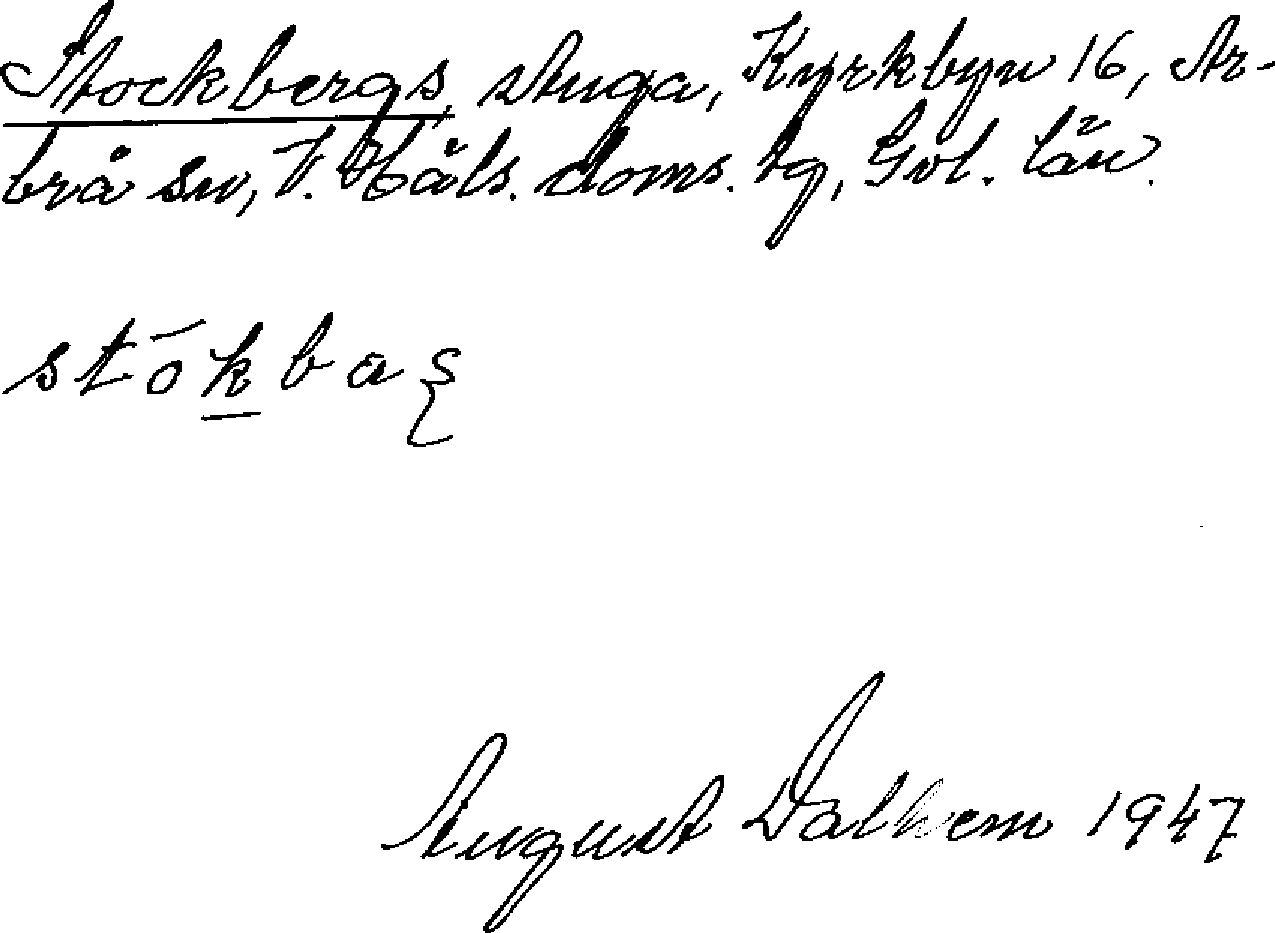 Stockbergs, stuga, Kyrkbyn 16, Ar-
brå sn, V. Häls. doms. tg, Gvl. län.
stōkbaş
August Dalhem 1947